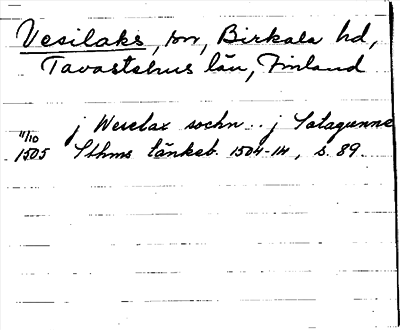 Vesilaks, sn, Birkala hd,
Tavastehus län, Finland
11/10 j Weselax sochn .. j Satagunne
1505 Sthms tänkeb. 1504-14, s. 89.